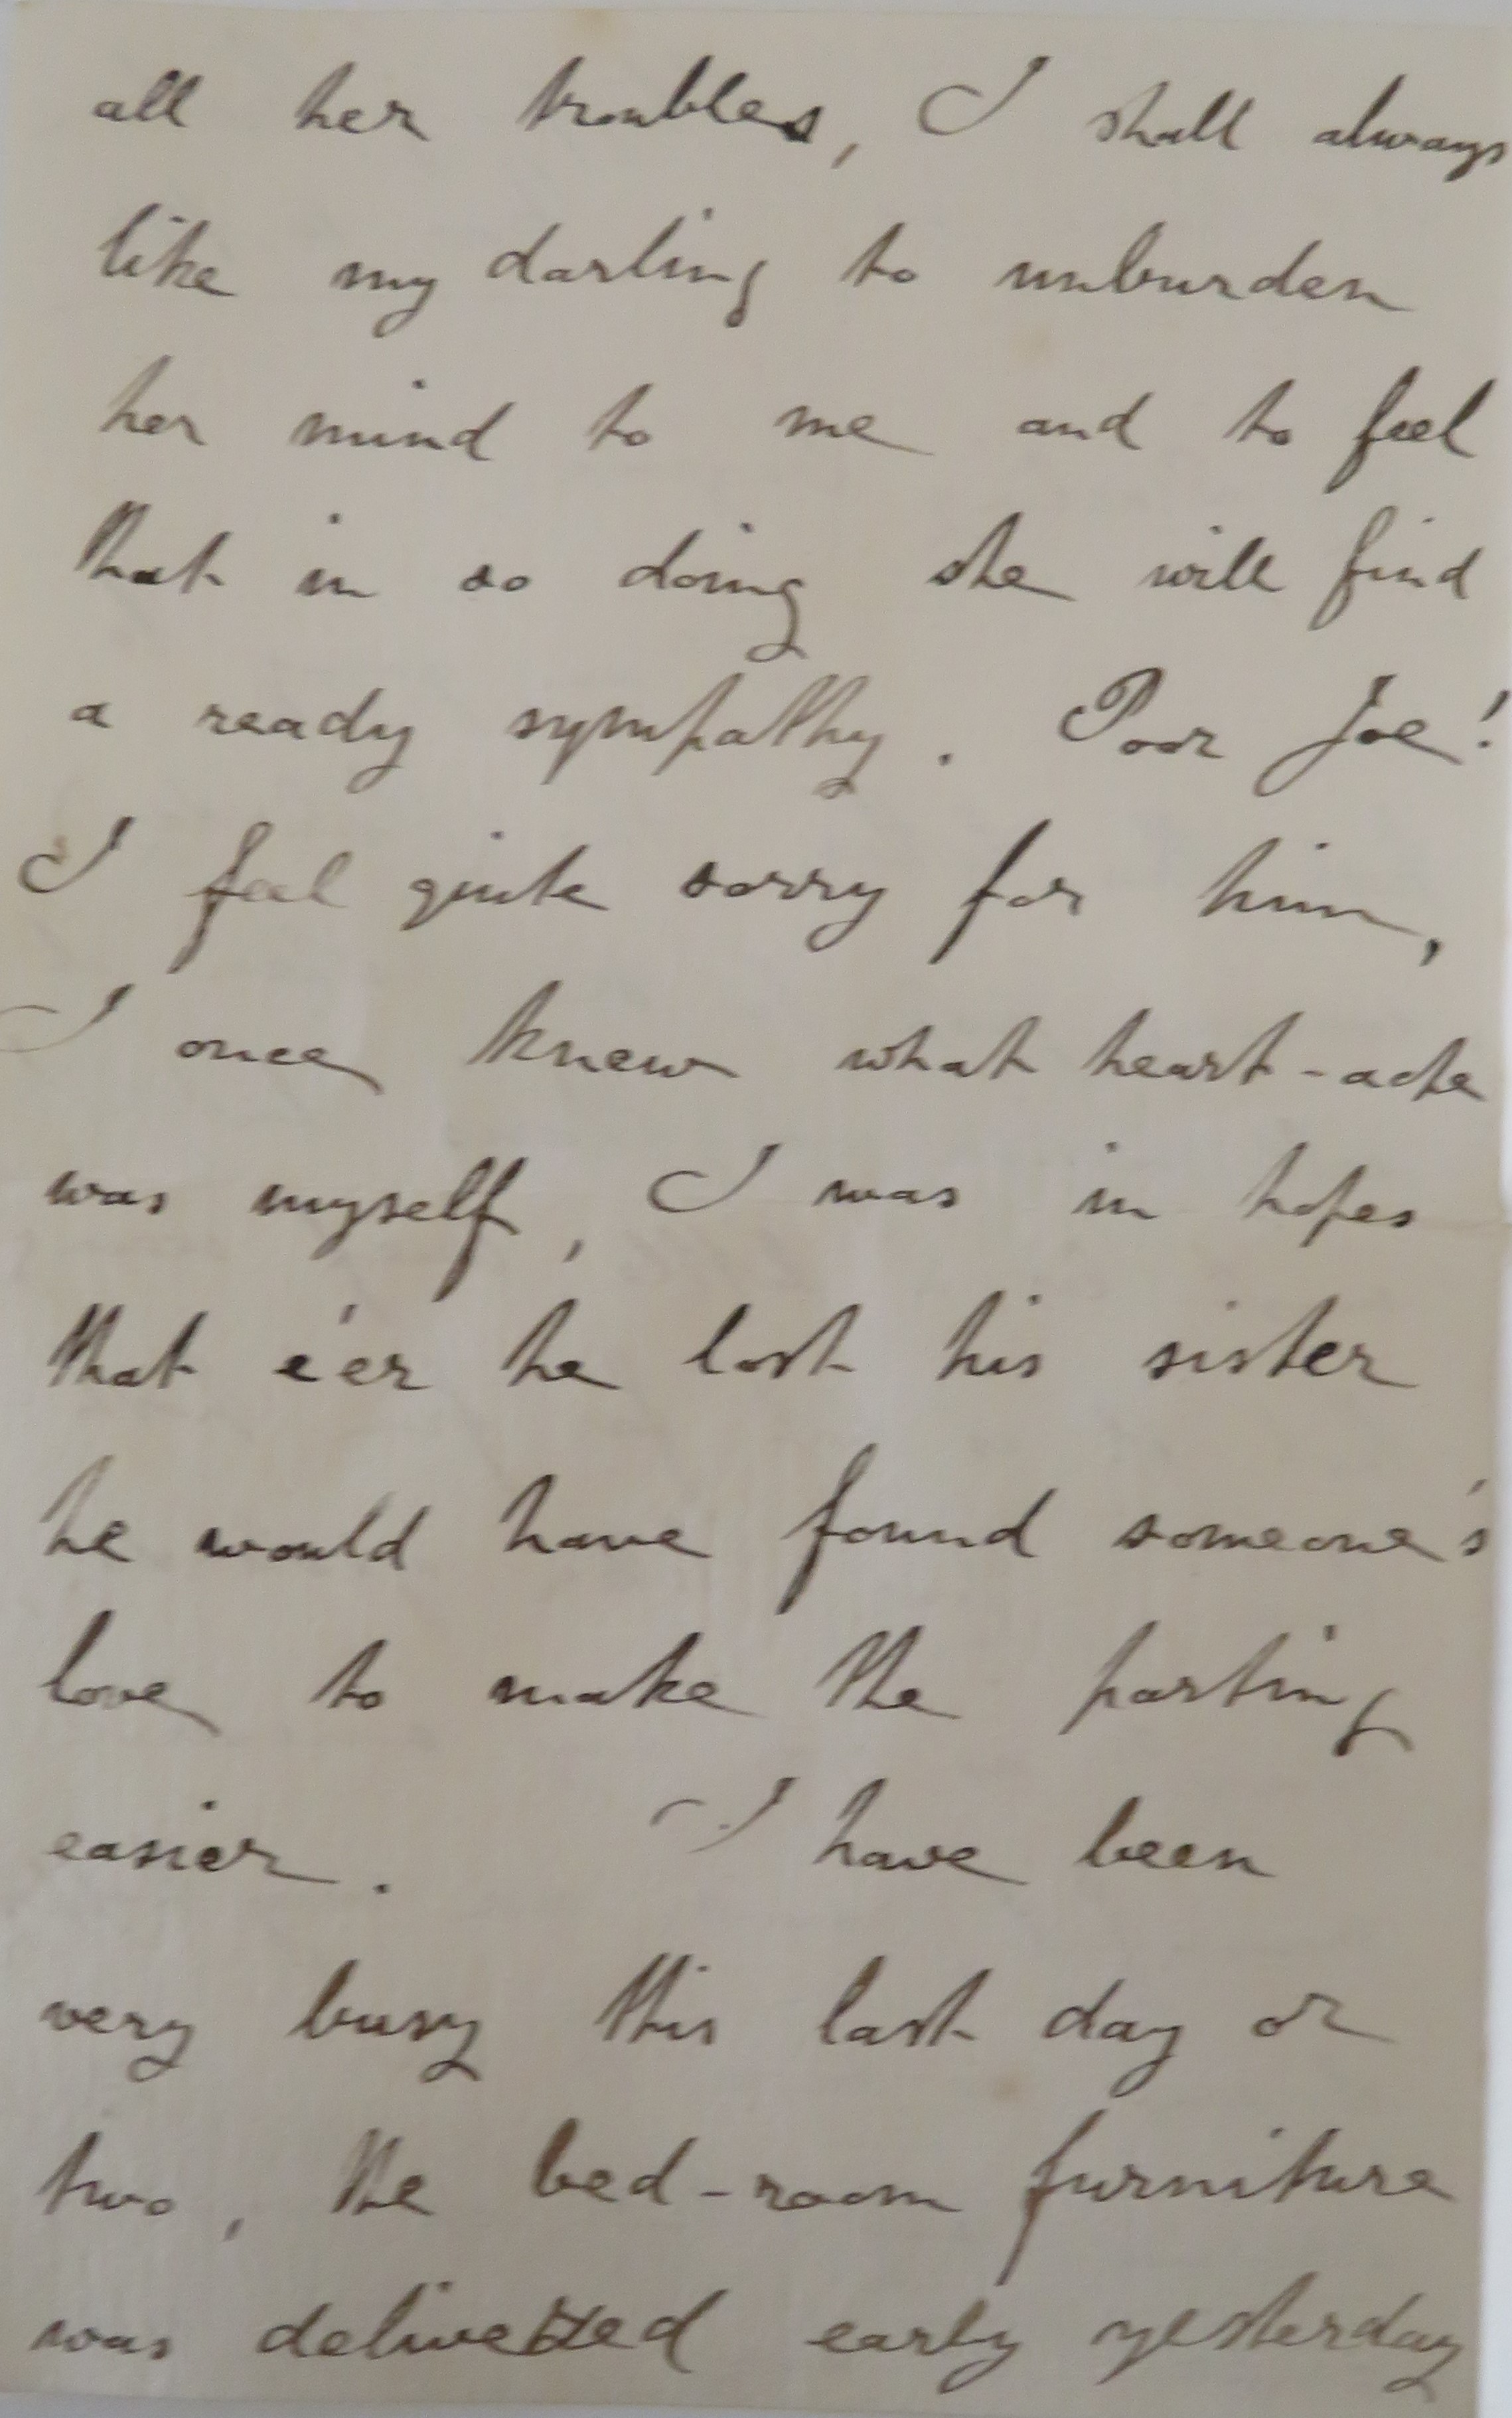 all her troubles, I shall always
like my darling to unburden
her mind to me and to feel
that in so doing she will find
a ready sympathy. Poor Joe!
I feel quite sorry for him,
I once knew what heart-ache
was myself, I was in hopes
that e'er he lost his sister
he would have found someone's
love to make the parting
easier. I have been
very busy this last day or
two, the bed-room furniture
was delivered early yesterday